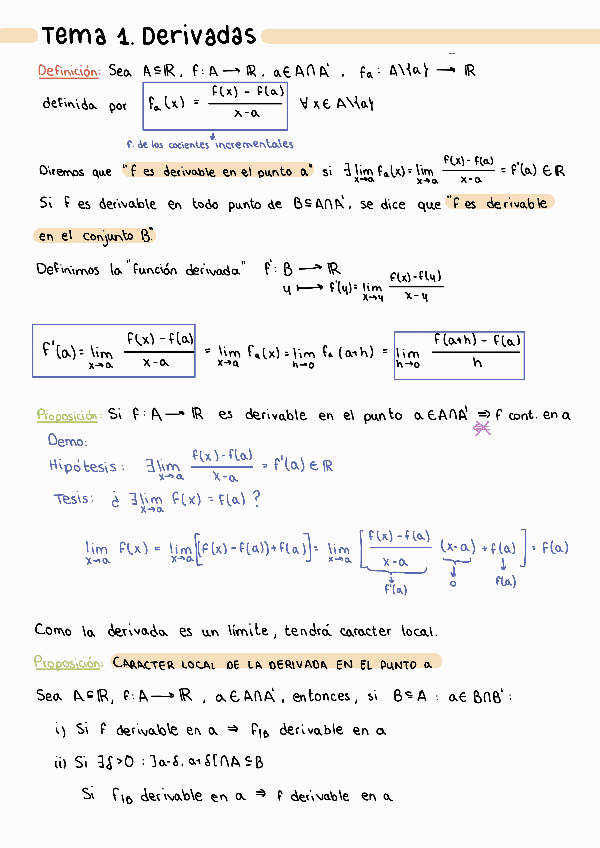 Tema 1. Derivadas
Definición: Sea A⊆ℝ, f: A → ℝ, a∈A∩A', fa: A\{a} → ℝ
definida por fa(x) = (f(x) - f(a))/(x-a) ∀x∈A\{a}
f. de los cocientes incrementales
Diremos que "f es derivable en el punto a" si ∃ lim x→a fa(x) = lim x→a (f(x)-f(a))/(x-a) = f'(a) ∈ ℝ
Si f es derivable en todo punto de B⊆A∩A', se dice que "f es derivable
en el conjunto B".
Definimos la "función derivada" f': B → ℝ
y ↦ f'(y) = lim x→y (f(x)-f(y))/(x-y)
f'(a) = lim x→a (f(x)-f(a))/(x-a) = lim x→a fa(x) = lim h→0 fa(a+h) = lim h→0 (f(a+h) - f(a))/h
Proposición: Si f: A → ℝ es derivable en el punto a∈A∩A' ⇒ f cont. en a
⇍
Demo:
Hipótesis: ∃ lim x→a (f(x)-f(a))/(x-a) = f'(a) ∈ ℝ
Tesis: ¿ ∃ lim x→a f(x) = f(a) ?
lim x→a f(x) = lim x→a [(f(x)-f(a))+f(a)] = lim x→a [(f(x)-f(a))/(x-a) (x-a) + f(a)] = f(a)
f'(a) 0 f(a)
Como la derivada es un límite, tendrá caracter local.
Proposición: CARACTER LOCAL DE LA DERIVADA EN EL PUNTO a
Sea A⊆ℝ, f: A → ℝ, a∈A∩A', entonces, si B⊆A : a∈B∩B':
i) Si f derivable en a ⇒ f|B derivable en a
ii) Si ∃δ>0 : ]a-δ, a+δ[∩A⊆B
Si f|B derivable en a ⇒ f derivable en a